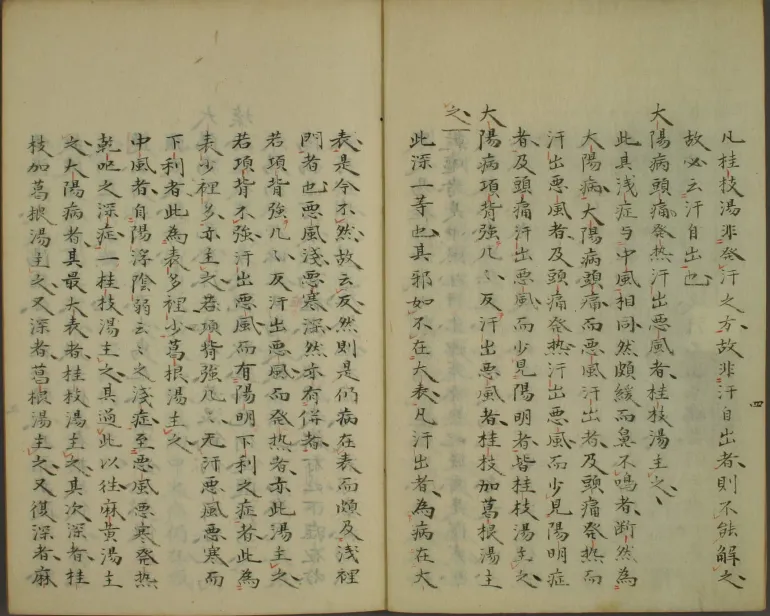 凡桂枝湯非発汗之方故非汗自出者則不能解之
故必云汗自出也
太陽病頭痛発熱汗出悪風者桂枝湯主之
此具浅症与中風相同然頗緩而鼻不鳴者断然為
太陽病太陽病頭痛而悪風汗出者及頭痛発熱而
汗出悪風者及頭痛発熱汗出悪風而少見陽明症
者及頭痛汗出悪風而少見陽明者皆桂枝湯主之
太陽病項背強几〻反汗出悪風者桂枝加葛根湯主
之
此深一等也其邪如不在大表凡汗出者為病在大
表是今不然故云反然則是们病在表而頗及浅裡
門者也悪風浅悪寒深然亦有併者
若項背強几〻反汗出悪風而発熱者亦此湯主之
若項背不強汗出悪風而有陽明下利之症者此為
表少裡多亦主之若項背強几〻无汗悪風悪寒而
下利者此為表多裡少葛根湯主之
中風者自陽浮陰弱云〻之浅症至悪風悪寒発熱
乾呕之深症一桂枝湯主之其過此以往麻黄湯主
之太陽病者其最大表者桂枝湯主之其次深者桂
枝加葛根湯主之又深者葛根湯主之又復深者麻
四